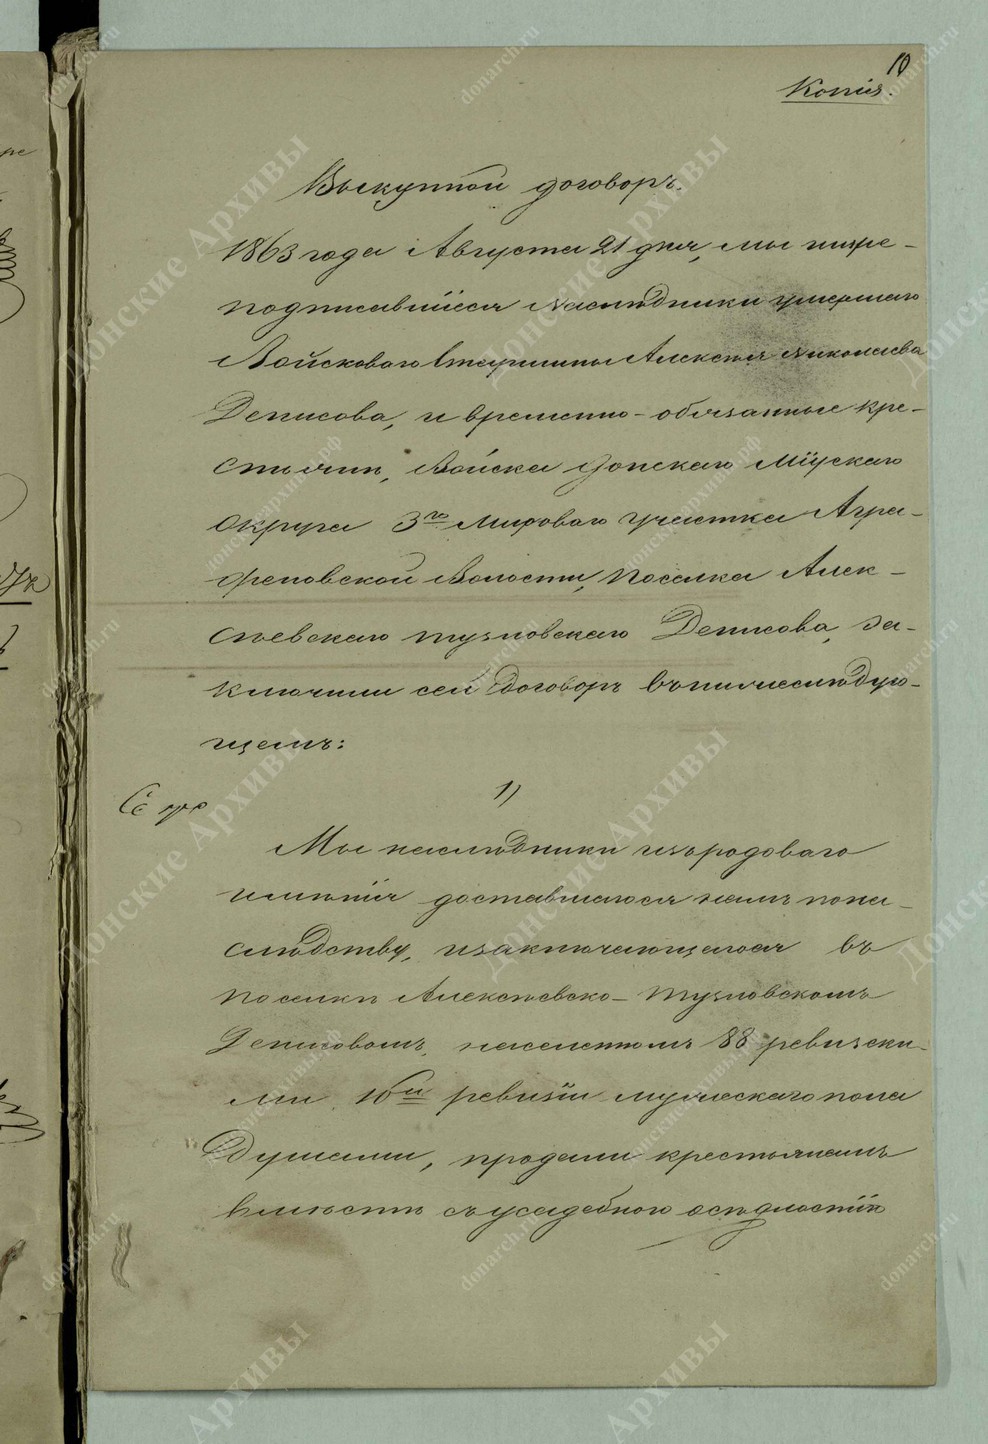 10
Копія.
Выкупной договоръ.
1863 года Августа 21 дня, мы ниже-
подписавшіеся наслѣдники умершаго
Войсковаго Старшины Алексѣя Николаева
Денисова, и временно-обязанные кре-
стьяне, Войска Донскаго Міускаго
Округа 3го Мироваго участка Агра-
феновской Волости, поселка Алек-
сѣевскаго Тузловскаго Денисова, за-
ключили сей договоръ въ нижеслѣдую-
щемъ:
1)
Мы наслѣдники изъ родоваго
имѣнія доставшагося намъ по на-
слѣдству, и заключающагося въ
поселкѣ Алексѣевско-Тузловскомъ
Денисовомъ, населенномъ 88 ревизски-
ми 10й ревизіи мужескаго пола
душами, продали крестьянамъ
вмѣстѣ съ усадебною осѣдлостію
донские архивы
донскиеархивы.рф
donarch.ru